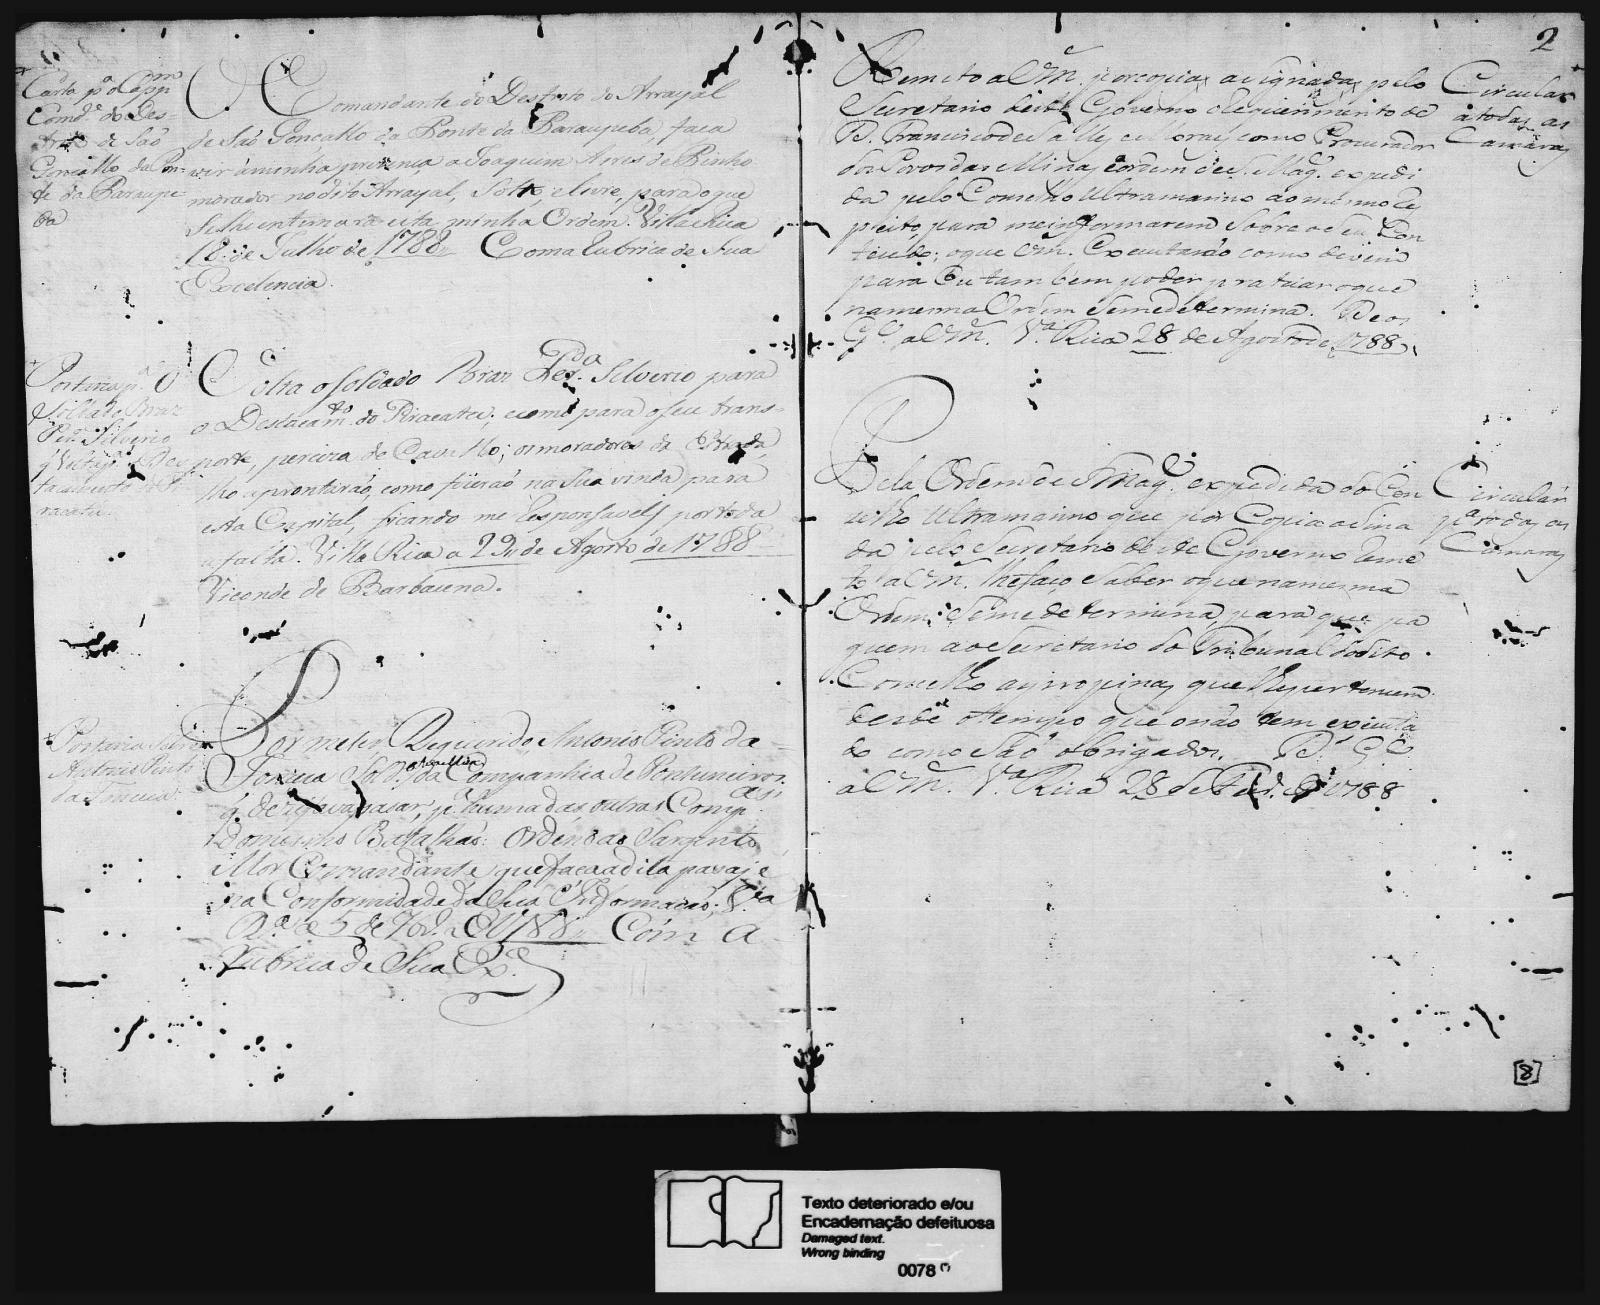 Carta pª o Capp.m
Comd.e do Des-
trito de São
Goncallo da Pon-
te da Paraupe
ba
O Comandante do Destrito do Arrayal
de São Goncallo da Ponte da Paraupeba, faca
vir á minha prezença a Joaquim Alves de Pinho
morador no dito Arrayal, Solto, e livre, para o que
Se lhe intimará esta minha Ordem. Villa Rica
18 de Julho de 1788 Com a Rubrica de Sua
Excelencia.
Portaria pª. O
Soldado Braz
Per.ª Silverio
q' Volta pª. o Des
tacamento do Pi
racatu.
Volta o Soldado Braz Per.ª Silverio para
o Destacam.to do Piracatu; e como para o seu trans-
porte, perciza de Cavallo; os moradores da Estrada
lho aprontarão, como fizerão na Sua vinda para
esta Capital, ficando me Responsaveis por toda
a falta. Villa Rica a 29 de Agosto de 1788
Viconde de Barbacena.
Portaria Sobre
Antonio Pinto
da Fonceca
Por me ter Requerido, Antonio Pinto da
Fonceca Sold.º da Companhia de Pontuneiros
q' dezejava pasar, pª. huma das outras Comp.as
do mesmo Batalhão: Ordeno ao Sargento
Mor Comandante que faca a dita pasaje
na Conformidade da Sua Informacão; V.ª
R.ª de 5 de 7br.º de 1788 Com a
Rubrica de Sua Ex.ª
2
Remeto a Vm.ces por copias asignadas pelo
Secretario deste Governo o Requerimento de
D. Francisco de Salles e Moraes como Procurador
dos Povos das Minas e ordem de S. Mag.e expedi
da pelo Conselho Ultramarino ao mesmo re
peito, para me informarem Sobre o Seu Con
teudo; o que Vm.ces Executarão como devem
para Eu tambem poder praticar o que
na mesma Ordem Se me determina. Deos
G.e a Vm.ces V.ª Rica 28 de Agosto de 1788
Circular
a todas as
Camaras
Pela Ordem de S. Mag.e expedida do Con
selho Ultramarino que por Copia asina
da pelo Secretario deste Governo Reme
to a Vm.ces lhe faço Saber o que na mesma
Ordem Se me determina, para que pa
guem ao Secretario do Tribunal do dito
Concelho as propinas que lhe pertencem
desde o tempo que o não tem executa
do como São obrigados. D.s G.e
a Vm.ces V.ª Rica 28 de 1788
Circular
pª todas as
Camaras
[8]
Texto deteriorado e/ou
Encadernação defeituosa
Damaged text.
Wrong binding
0078 (*)